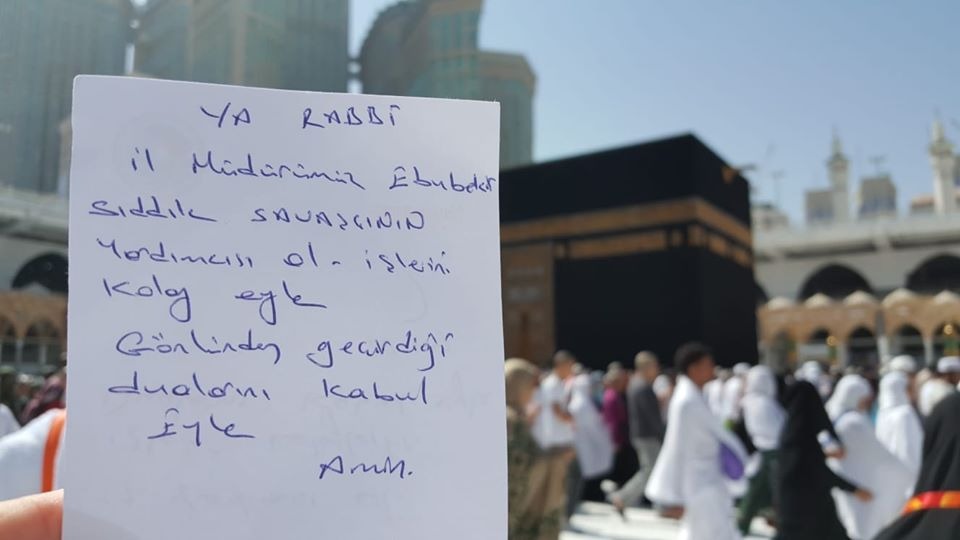 YA RABBİ
il Müdürümüz Ebubekir
Sıddık SAVAŞÇININ
Yardımcısı ol - işlerini
Kolay eyle
Gönlinden geçirdiği
dualarını kabul
Eyle
Amin.